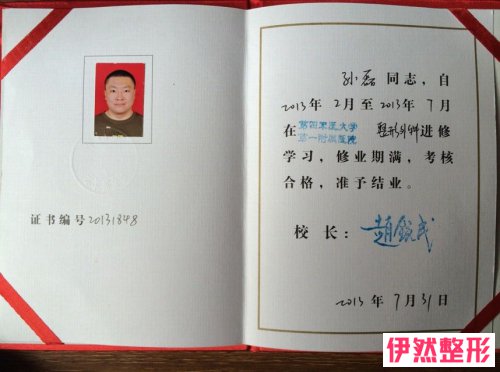 证书编号20131848
孙磊同志，自
2013年2月至2013年7月
在第四军医大学第一附属医院整形外科进修
学习，修业期满，考核
合格，准予结业。
校长：
2013年7月31日
伊然整形